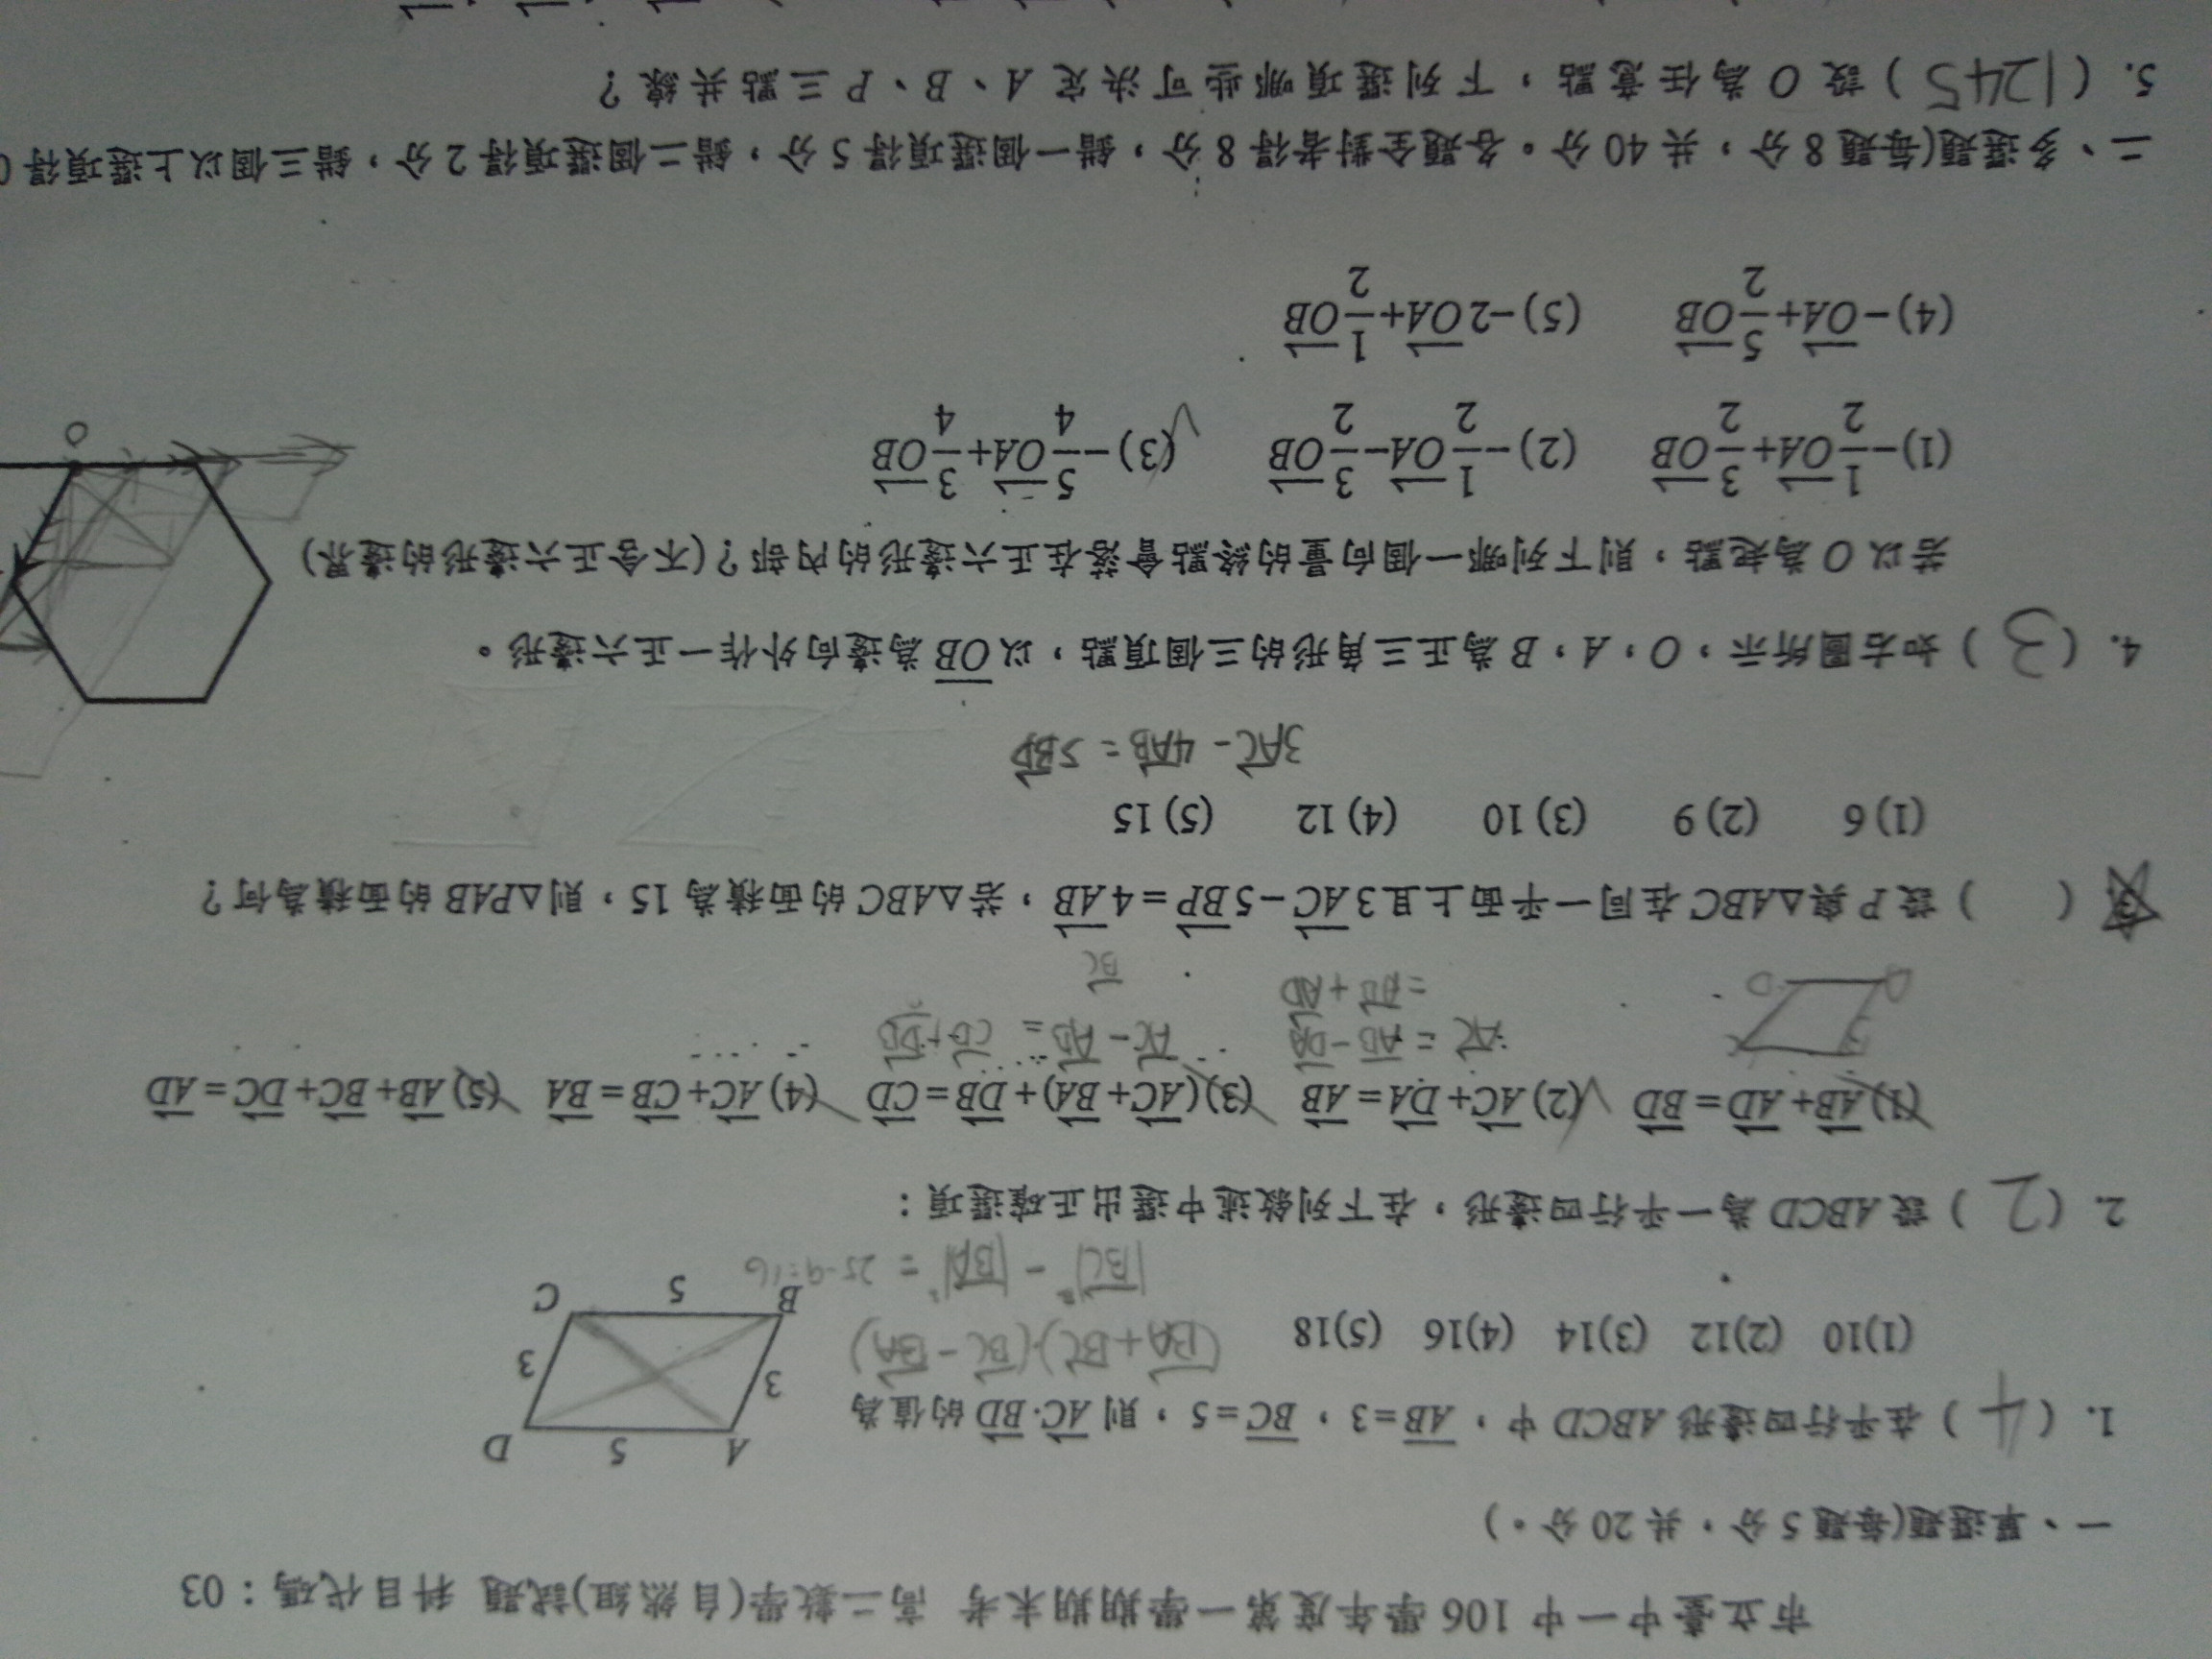 市立臺中一中 106 學年度第一學期期末考 高二數學(自然組)試題 科目代碼：03
一、單選題(每題 5 分，共 20 分。)
1. ( 4 ) 在平行四邊形 ABCD 中，AB=3，BC=5，則 AC·BD 的值為
(1)10 (2)12 (3)14 (4)16 (5)18
(BA+BC)·(BC-BA)
|BC|²-|BA|²=25-9=16
A 5 D
3 3
B 5 C
2. ( 2 ) 設 ABCD 為一平行四邊形，在下列敘述中選出正確選項：
(1) AB+AD=BD (2) AC+DA=AB (3) (AC+BA)+DB=CD (4) AC+CB=BA (5) AB+BC+DC=AD
AC=AB-DA AC-AB=CD+DB
=AB+AD BC
3. ( ) 設 P 與△ABC 在同一平面上且 3AC-5BP=4AB，若△ABC 的面積為 15，則△PAB 的面積為何？
(1) 6 (2) 9 (3) 10 (4) 12 (5) 15
3AC-4AB=5BP
4. ( 3 ) 如右圖所示，O，A，B 為正三角形的三個頂點，以 OB 為邊向外作一正六邊形。
若以 O 為起點，則下列哪一個向量的終點會落在正六邊形的內部？(不含正六邊形的邊界)
(1) -1/2 OA+3/2 OB (2) -1/2 OA-3/2 OB (3) -5/4 OA+3/4 OB
(4) -OA+5/2 OB (5) -2OA+1/2 OB
O
二、多選題(每題 8 分，共 40 分。各題全對者得 8 分，錯一個選項得 5 分，錯二個選項得 2 分，錯三個以上選項得 0
5. ( 1245 ) 設 O 為任意點，下列選項哪些可決定 A、B、P 三點共線？